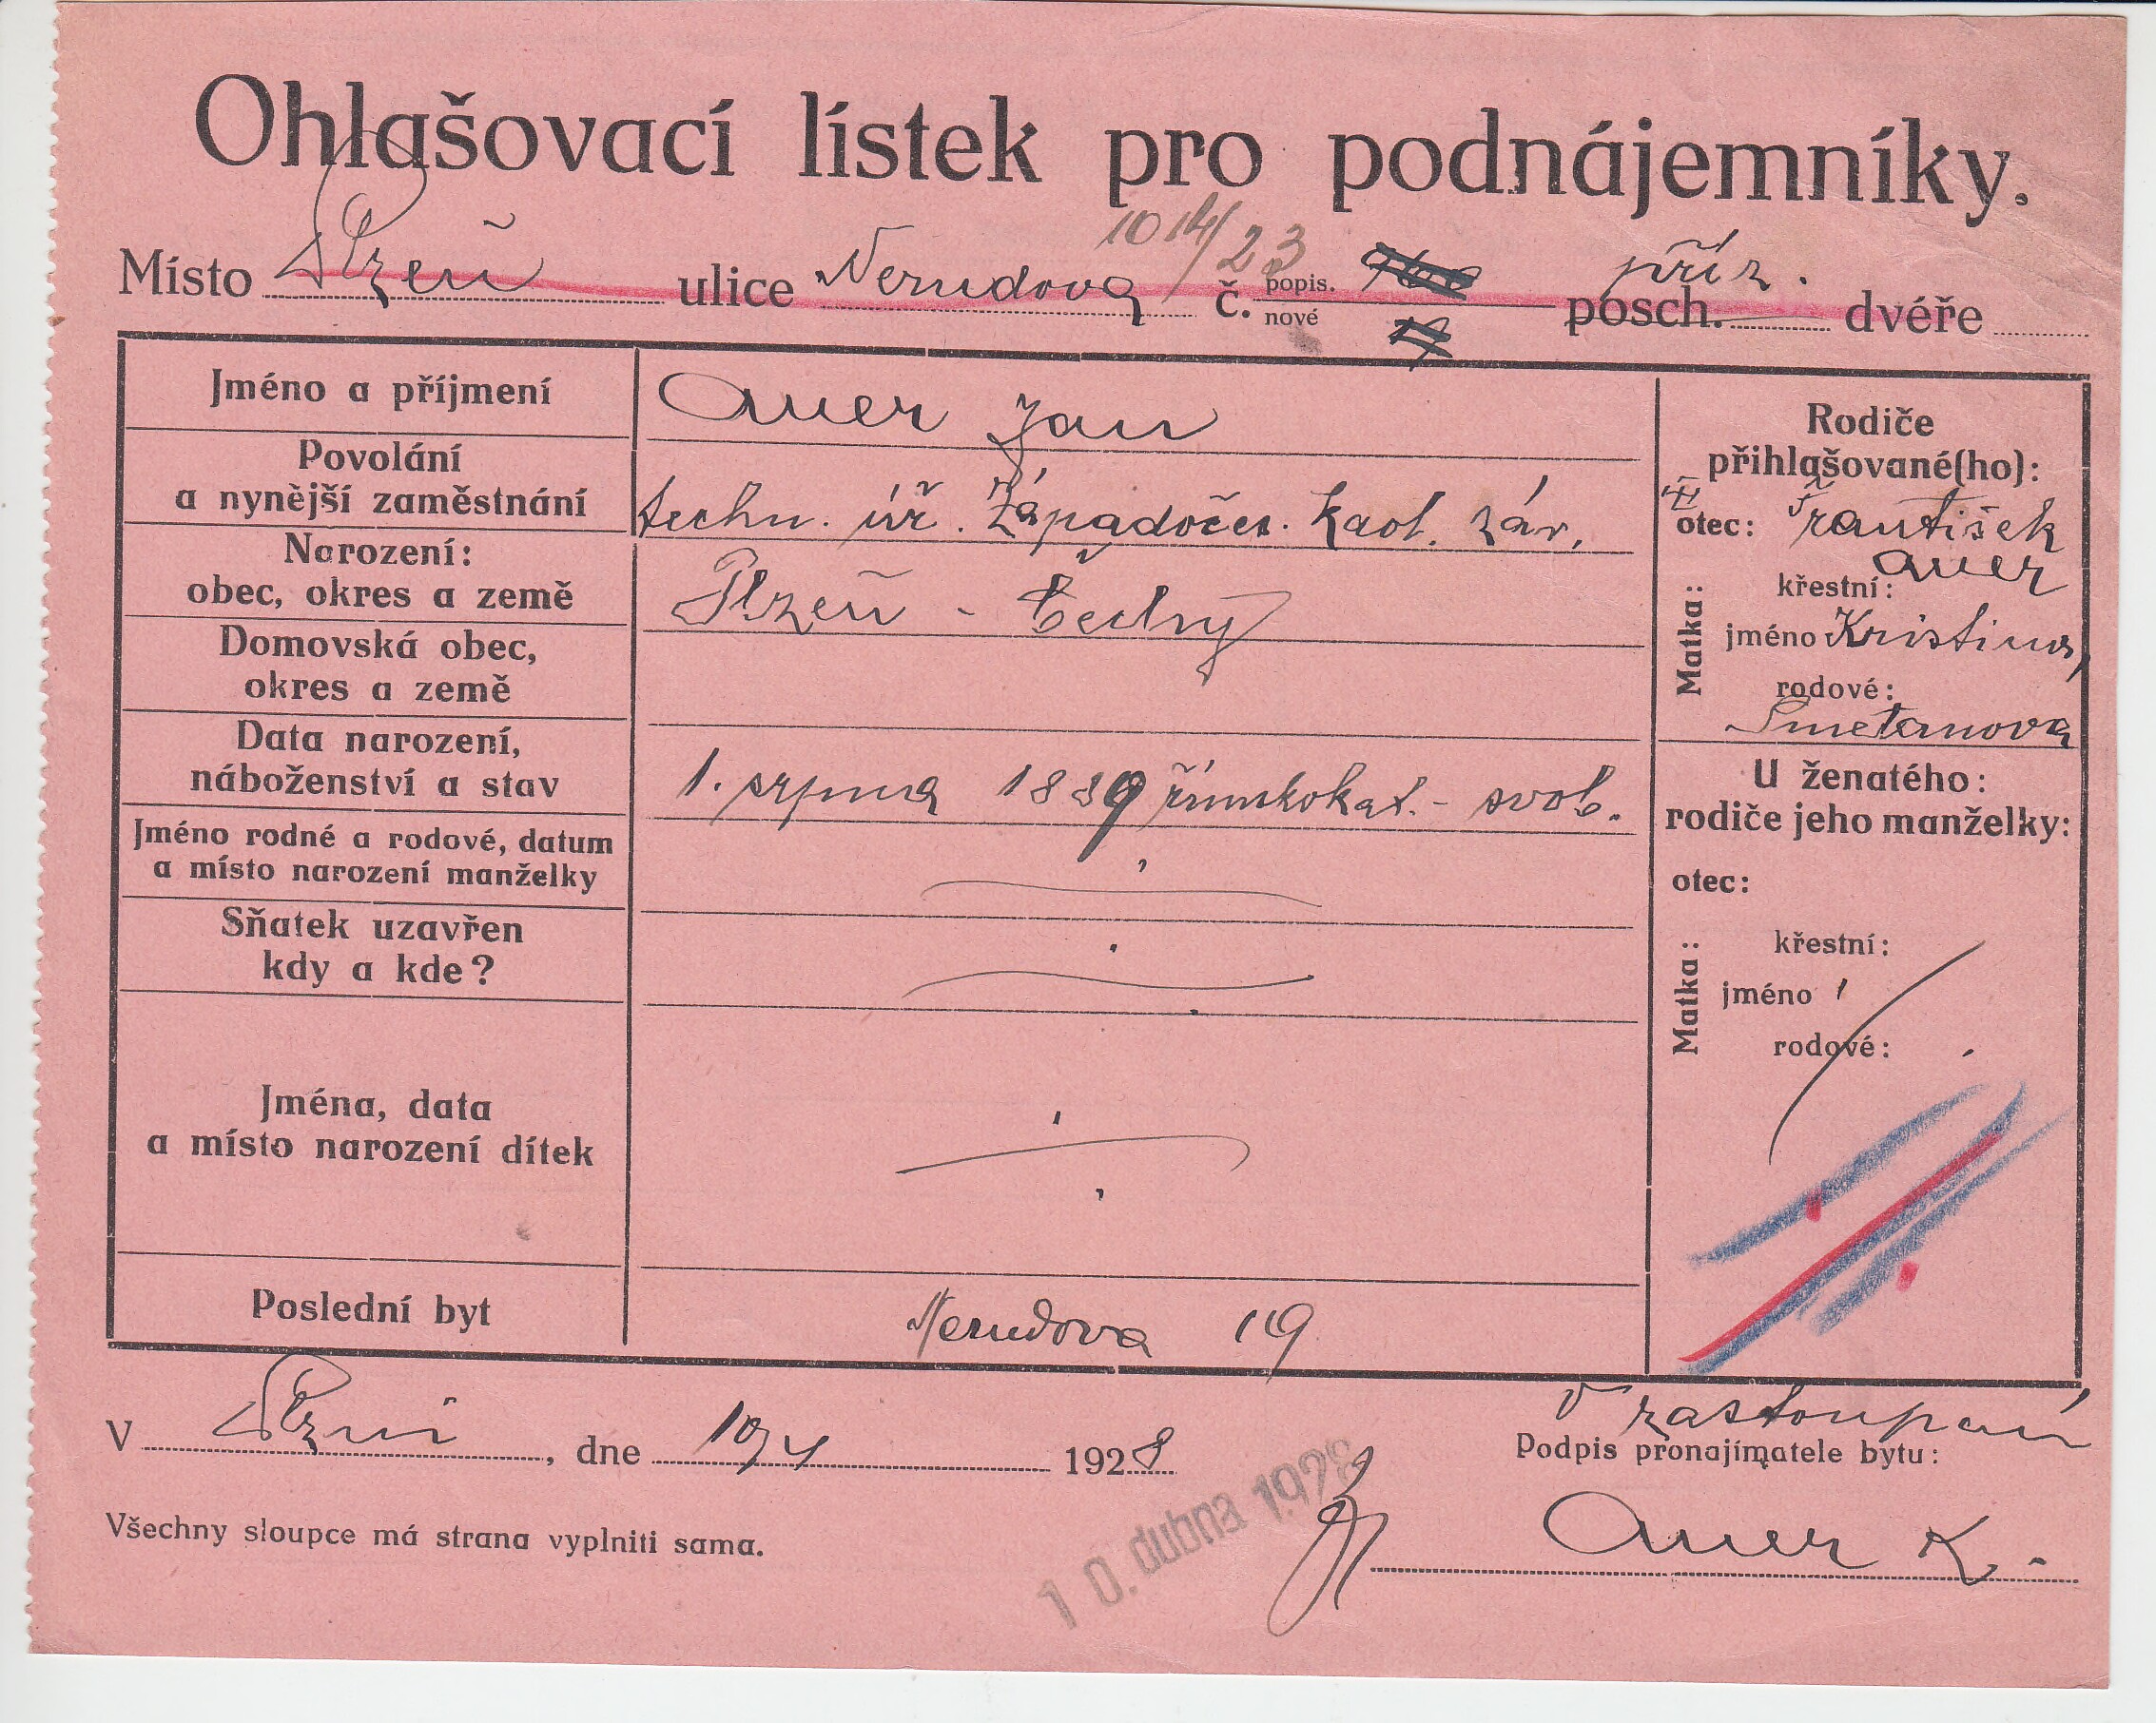 Ohlašovací lístek pro podnájemníky.
1014/23
Místo Plzeň ulice Nerudova č. popis. nové posch. příz. dvéře
Jméno a příjmení
Auer Jan
Povolání
a nynější zaměstnání
techn. úř. Západočes. kaol. záv.
Narození:
obec, okres a země
Plzeň - Čechy
Domovská obec,
okres a země
Data narození,
náboženství a stav
1. srpna 1889 římskokat. - svob.
Jméno rodné a rodové, datum
a místo narození manželky
Sňatek uzavřen
kdy a kde?
Jména, data
a místo narození dítek
Poslední byt
Nerudova 19
Rodiče
přihlašované(ho):
otec: František
Auer
Matka:
křestní:
jméno Kristina,
rodové:
Smetanova
U ženatého:
rodiče jeho manželky:
otec:
Matka:
křestní:
jméno
rodové:
V Plzni, dne 10/4 1928
v zastoupení
Podpis pronajímatele bytu:
10. dubna 1928
Auer K.
Všechny sloupce má strana vyplniti sama.